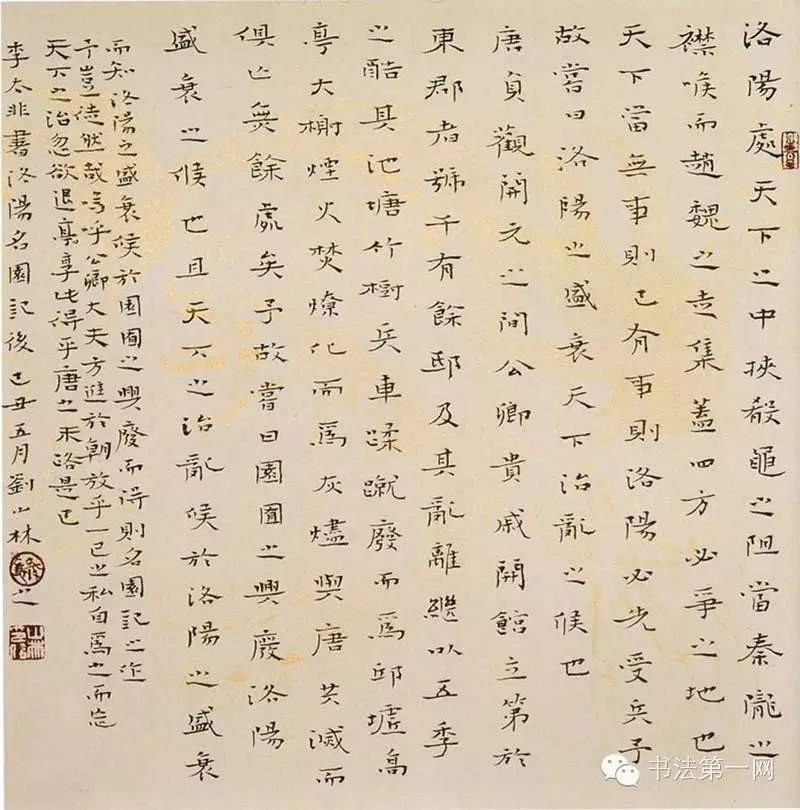 洛陽處天下之中挾殽黽之阻當秦隴之
襟喉而趙魏之走集蓋四方必爭之地也
天下當無事則已有事則洛陽必先受兵予
故嘗曰洛陽之盛衰天下治亂之候也
唐貞觀開元之間公卿貴戚開館立第於
東郡者號千有餘邸及其亂離繼以五季
之酷其池塘竹樹兵車蹂蹴廢而爲邱墟高
亭大榭煙火焚燎化而爲灰燼與唐共滅而
俱亡無餘處矣予故嘗曰園囿之興廢洛陽
盛衰之候也且天下之治亂候於洛陽之盛衰
而知洛陽之盛衰候於園囿之興廢而得則名園記之作
予豈徒然哉嗚呼公卿大夫方進於朝放乎一己之私自爲之而忘
天下之治忽欲退享此得乎唐之末洛是已
李太非書洛陽名園記後 己丑五月劉山林
书法第一网